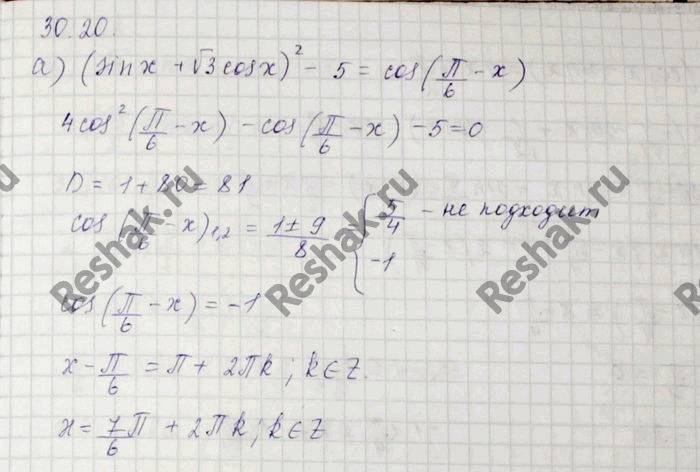 30.20.
а) (sin x + √3 cos x)² - 5 = cos(П/6 - x)
4cos²(П/6 - x) - cos(П/6 - x) - 5 = 0
D = 1 + 80 = 81
cos(П/6 - x)₁,₂ = (1 ± 9)/8 = { 5/4 - не подходит
-1
cos(П/6 - x) = -1
x - П/6 = П + 2Пk; k ∈ Z.
x = 7/6 П + 2Пk; k ∈ Z
Reshak.ru
Reshak.ru
Reshak.ru
Reshak.ru